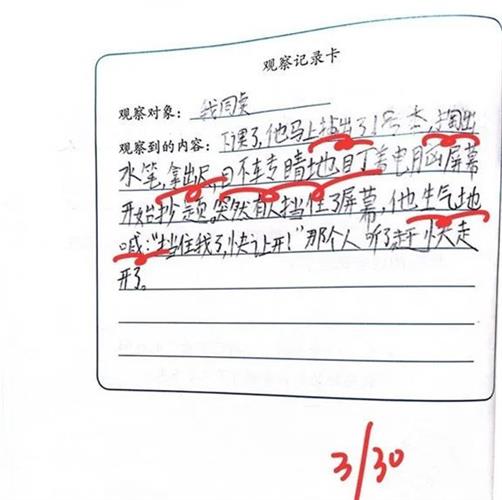 观察记录卡
观察对象：我同桌
观察到的内容：下课了，他马上掏出了1号本，掏出
水笔，拿出尺，目不转睛地盯着电脑屏幕
开始抄题，突然有人挡住了屏幕，他生气地
喊："挡住我了，快让开！"那个人听了赶快走
开了。
3/30